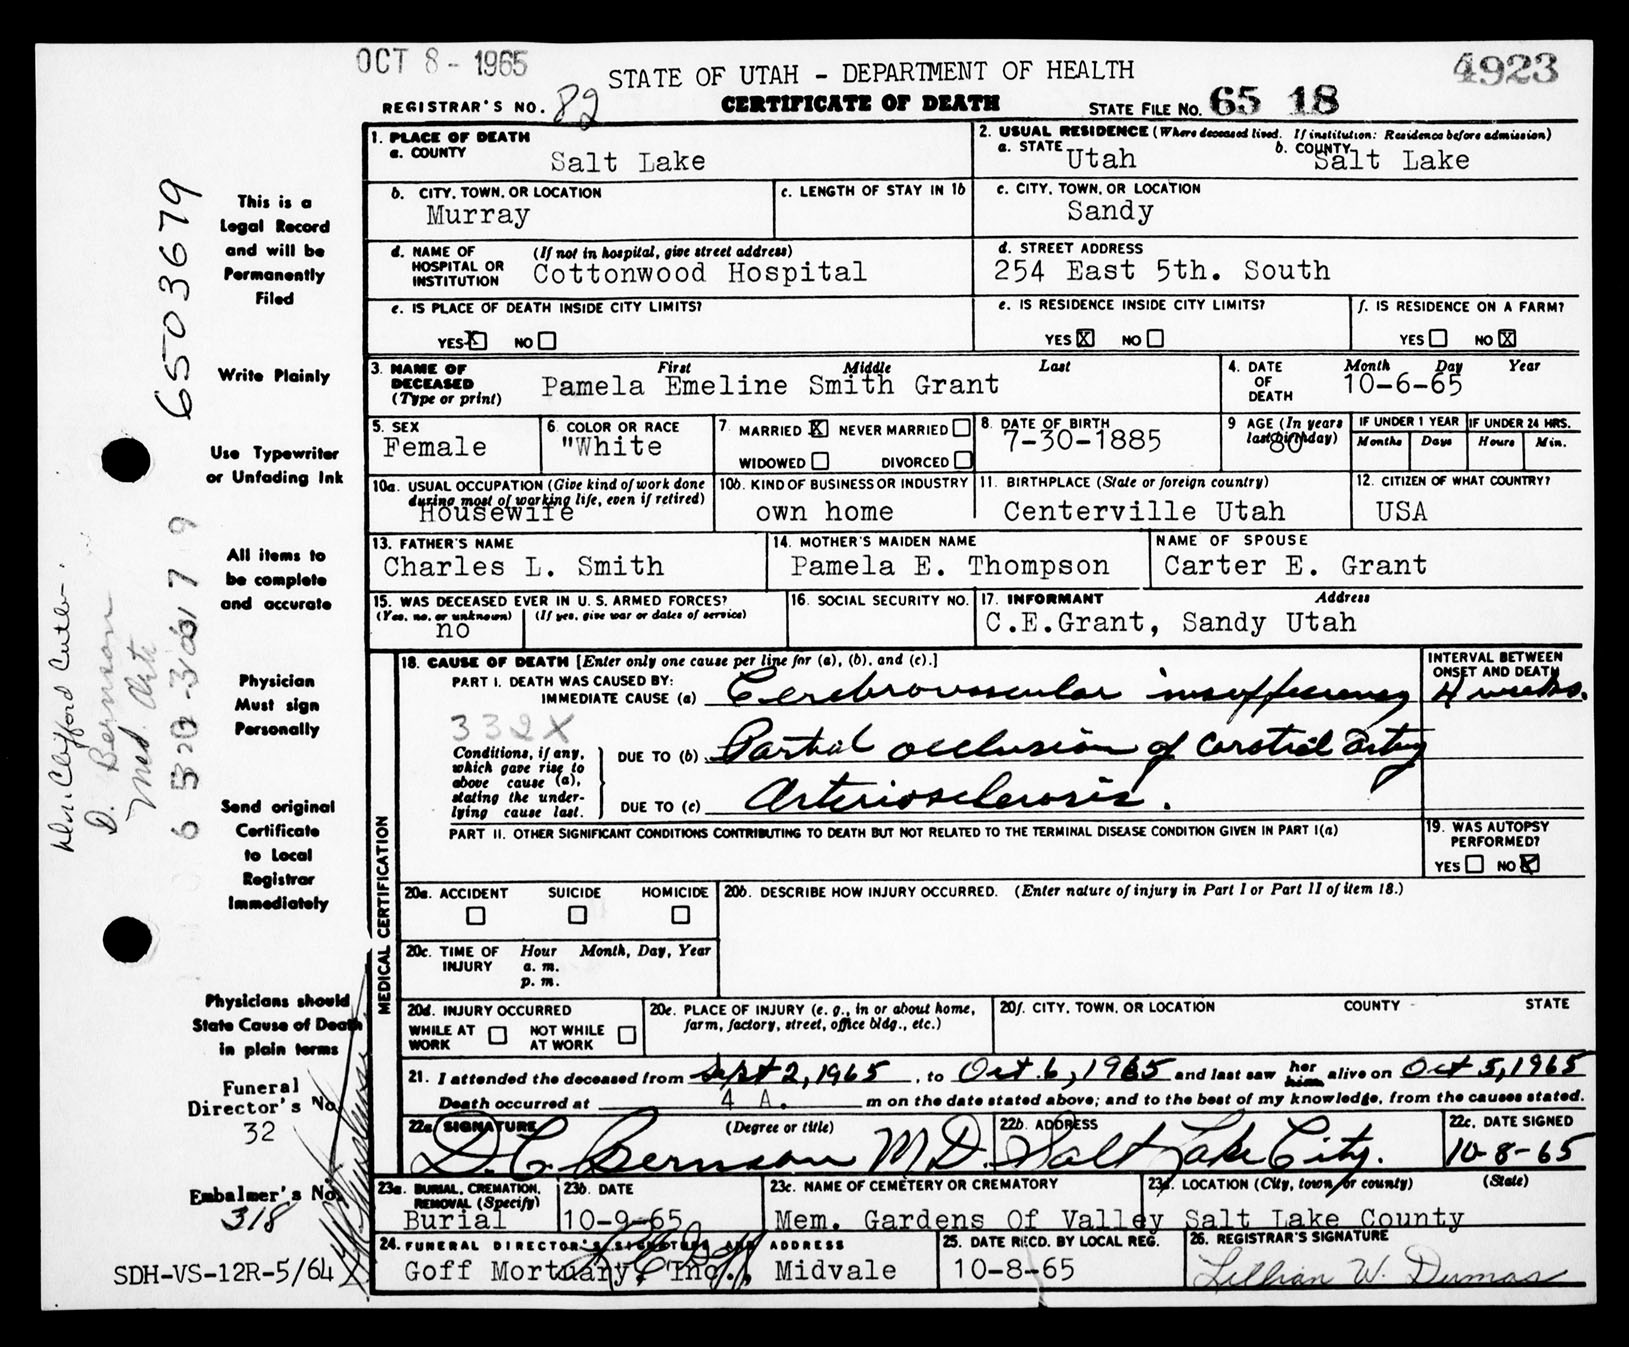 OCT 8 - 1965
4923
STATE OF UTAH - DEPARTMENT OF HEALTH
REGISTRAR'S NO. 82
CERTIFICATE OF DEATH
STATE FILE NO. 65 18
1. PLACE OF DEATH
a. COUNTY Salt Lake
2. USUAL RESIDENCE (Where deceased lived. If institution: Residence before admission)
a. STATE Utah b. COUNTY Salt Lake
b. CITY, TOWN, OR LOCATION Murray
c. LENGTH OF STAY IN 1b
c. CITY, TOWN, OR LOCATION Sandy
d. NAME OF HOSPITAL OR INSTITUTION (If not in hospital, give street address) Cottonwood Hospital
d. STREET ADDRESS 254 East 5th. South
e. IS PLACE OF DEATH INSIDE CITY LIMITS?
YES X NO
e. IS RESIDENCE INSIDE CITY LIMITS?
YES X NO
f. IS RESIDENCE ON A FARM?
YES NO X
3. NAME OF DECEASED (Type or print) First Middle Last
Pamela Emeline Smith Grant
4. DATE OF DEATH Month Day Year
10-6-65
5. SEX Female
6. COLOR OR RACE "White
7. MARRIED X NEVER MARRIED
WIDOWED DIVORCED
8. DATE OF BIRTH 7-30-1885
9 AGE (In years last birthday) 80
IF UNDER 1 YEAR Months Days
IF UNDER 24 HRS. Hours Min.
10a. USUAL OCCUPATION (Give kind of work done during most of working life, even if retired) Housewife
10b. KIND OF BUSINESS OR INDUSTRY own home
11. BIRTHPLACE (State or foreign country) Centerville Utah
12. CITIZEN OF WHAT COUNTRY? USA
13. FATHER'S NAME Charles L. Smith
14. MOTHER'S MAIDEN NAME Pamela E. Thompson
NAME OF SPOUSE Carter E. Grant
15. WAS DECEASED EVER IN U. S. ARMED FORCES?
(Yes, no, or unknown) (If yes, give war or dates of service)
no
16. SOCIAL SECURITY NO.
17. INFORMANT Address
C.E.Grant, Sandy Utah
MEDICAL CERTIFICATION
18. CAUSE OF DEATH [Enter only one cause per line for (a), (b), and (c).]
INTERVAL BETWEEN ONSET AND DEATH
PART I. DEATH WAS CAUSED BY:
IMMEDIATE CAUSE (a) Cerebrovascular insufficiency 4 weeks.
332X
Conditions, if any, which gave rise to above cause (a), stating the underlying cause last.
DUE TO (b) Partial occlusion of carotid artery
DUE TO (c) Arteriosclerosis.
PART II. OTHER SIGNIFICANT CONDITIONS CONTRIBUTING TO DEATH BUT NOT RELATED TO THE TERMINAL DISEASE CONDITION GIVEN IN PART I(a)
19. WAS AUTOPSY PERFORMED?
YES NO X
20a. ACCIDENT SUICIDE HOMICIDE
20b. DESCRIBE HOW INJURY OCCURRED. (Enter nature of injury in Part I or Part II of item 18.)
20c. TIME OF INJURY Hour Month, Day, Year
a. m.
p. m.
20d. INJURY OCCURRED
WHILE AT WORK NOT WHILE AT WORK
20e. PLACE OF INJURY (e. g., in or about home, farm, factory, street, office bldg., etc.)
20f. CITY, TOWN, OR LOCATION COUNTY STATE
21. I attended the deceased from Sept 2, 1965, to Oct. 6, 1965 and last saw her him alive on Oct 5, 1965
Death occurred at 4 A. m on the date stated above; and to the best of my knowledge, from the causes stated.
22a. SIGNATURE (Degree or title)
D. C. Bernson M D.
22b. ADDRESS Salt Lake City.
22c. DATE SIGNED 10-8-65
23a. BURIAL, CREMATION, REMOVAL (Specify) Burial
23b. DATE 10-9-65
23c. NAME OF CEMETERY OR CREMATORY Mem. Gardens Of Valley
23d. LOCATION (City, town, or county) (State)
Salt Lake County
24. FUNERAL DIRECTOR'S SIGNATURE AND ADDRESS
Goff Mortuary, Inc., Midvale
25. DATE REC'D. BY LOCAL REG. 10-8-65
26. REGISTRAR'S SIGNATURE Lillian W. Dumas
This is a
Legal Record
and will be
Permanently
Filed
Write Plainly
Use Typewriter
or Unfading Ink
All items to
be complete
and accurate
Physician
Must sign
Personally
Send original
Certificate
to Local
Registrar
Immediately
Physicians should
State Cause of Death
in plain terms
Funeral
Director's No.
32
Embalmer's No.
318
SDH-VS-12R-5/64
6503679
D. Bernson